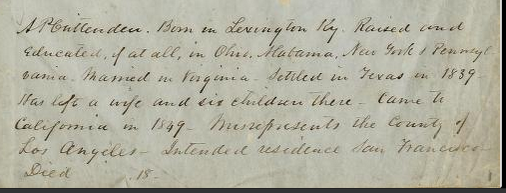 A P Crittenden. Born in Lexington Ky. Raised and
Educated, if at all, in Ohio, Alabama, New York & Pennsyl
vania. Married in Virginia - Settled in Texas in 1839 -
Has left a wife and six children there - Came to
California in 1849 - Misrepresents the County of
Los Angeles - Intended residence San Francisco -
Died 18-